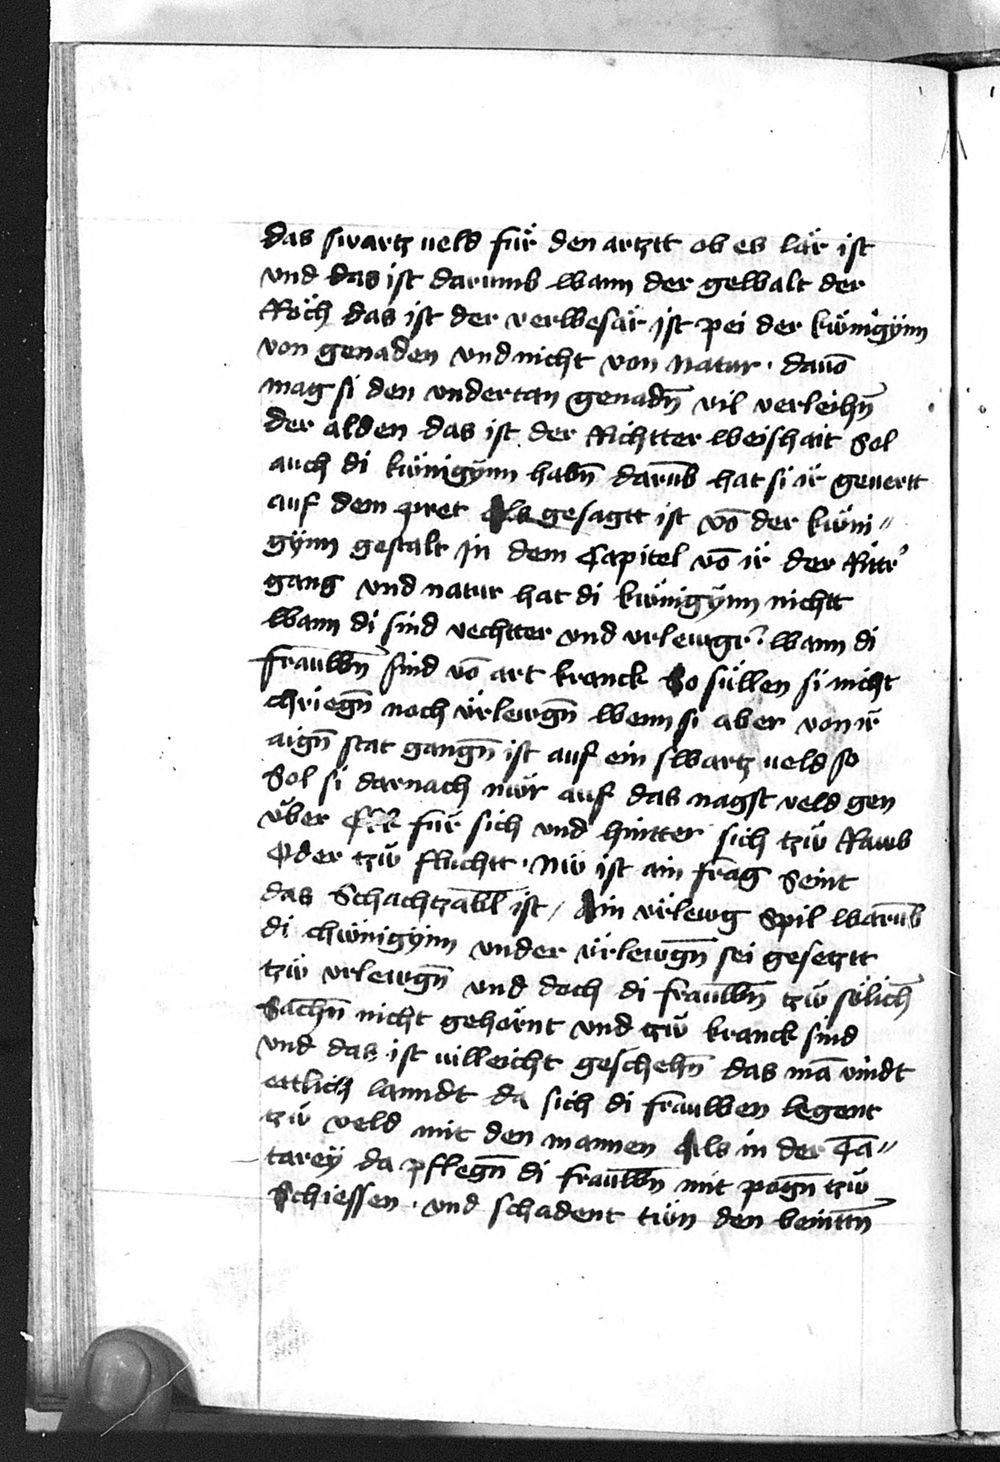 das swartz ueld für den artztt ob es lär ist
vnd das ist darumb wann der gewalt der
Röch das ist der verwesär ist pei der küniginn
von genaden vnd nicht von Natur · dauō
mag si den vndertan genadn̄ vil verleihn̄
der alden das ist der Richtter weishait Sol
auch di künigÿnn habn̄ darūb hat si ir geuertt
auf dem pret Als gesagtt ist vō der küni〃
gÿnn gestalt in dem Capitel vō ir der Rittr̄
gang vnd natur hat di künigÿnn nichtt
wann di sind vechtter vnd vrlewgr̄ · wann di
frauwn̄ sind vō art kranck So süllen si nicht
chriegn̄ noch ürlewgn̄ wenn si aber von ir
aign̄ stat gangn̄ ist auf ein swartz ueld so
Sol si darnach nür auf das nagst veld gen
über Ekk für sich vnd hintter sich tzü Rawb
Oder tzü fluchtt · Nü ist ain frag Seint
das Schachtzabl ist / Ain ürlewg Spil warūb
di chünigÿnn vnder ürlewgn̄ sei gesetztt
tzü vrlewgn̄ vnd doch di frauwn̄ tzü sölich̄
Sachn̄ nicht gehörnt vnd tzü kranck sind
vnd das ist uilleicht geschehn̄ das mā vindt
ettlich lanndt da sich di frauwen legent
tzü veld mit den mannen Als in der Ta〃
tareÿ da pflegn̄ di frauwn̄ mit pogn̄ tzü
Schiessen · vnd schadent tün den veintn̄